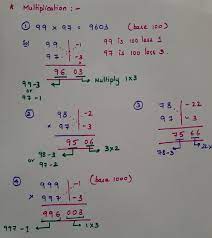 * Multiplication :-
① 99 × 97 = 9603 (base 100)
99 -1 99 is 100 less 1
97 -3 97 is 100 less 3
96 03
99-3 Multiply 1×3
or
97-1
② ③
98 -2 78 -22
× 97 -3 97 -3
95 06 75 66
98-3 3×2 78-3
or
97-2
④ 999 -1 (base 1000)
× 997 -3
996 003
997-1 1×3